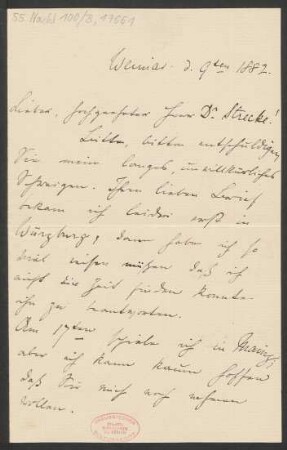 55 Nachl 100/B, 17661
Weimar d. 9ten 1882.
Lieber, hochgeehrter Herr Dr Strecke!
Bitte, bitte entschuldigen
Sie mein langes, unwillkürliches
Schweigen. Ihren lieben Brief
bekam ich leider erst in
Würzburg, dann habe ich so
viel reisen müssen daß ich
nicht die Zeit finden konnte
ihn zu beantworten.
Am 17ten spiele ich in
aber ich kann kaum hoffen
daß Sie mich noch nehmen
wollen.